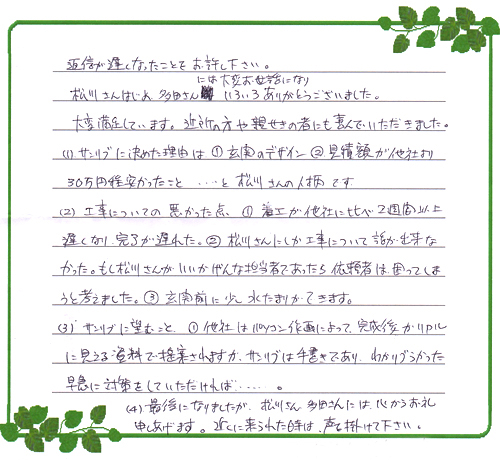 返信が遅くなったことをお許し下さい。
には大変お世話になり
松川さんはじめ 多田さん いろいろありがとうございました。
大変満足しています。近所の方や親せきの者にも喜んでいただきました。
(1) サンリブに決めた理由は ① 玄関のデザイン ② 見積額が他社より
30万円程安かったこと ……と 松川さんの人柄です
(2) 工事についての 悪かった点、① 着工が他社に比べ 2週間以上
遅くなり 完了が遅れた。② 松川さんにしか工事について話が出来な
かった。もし松川さんが いいかげんな担当者であったら 依頼者は困ってしま
うと考えました。③ 玄関前に少し水たまりができます。
(3) サンリブに望むこと、① 他社はパソコン作画によって、完成後がリアル
に見える資料で提案されますが、サンリブは手書きであり、わかりづらかった
早急に対策をしていただければ……。
(4) 最後になりましたが、松川さん 多田さんには、心からお礼
申しあげます。近くに来られた時は、声を掛けて下さい。